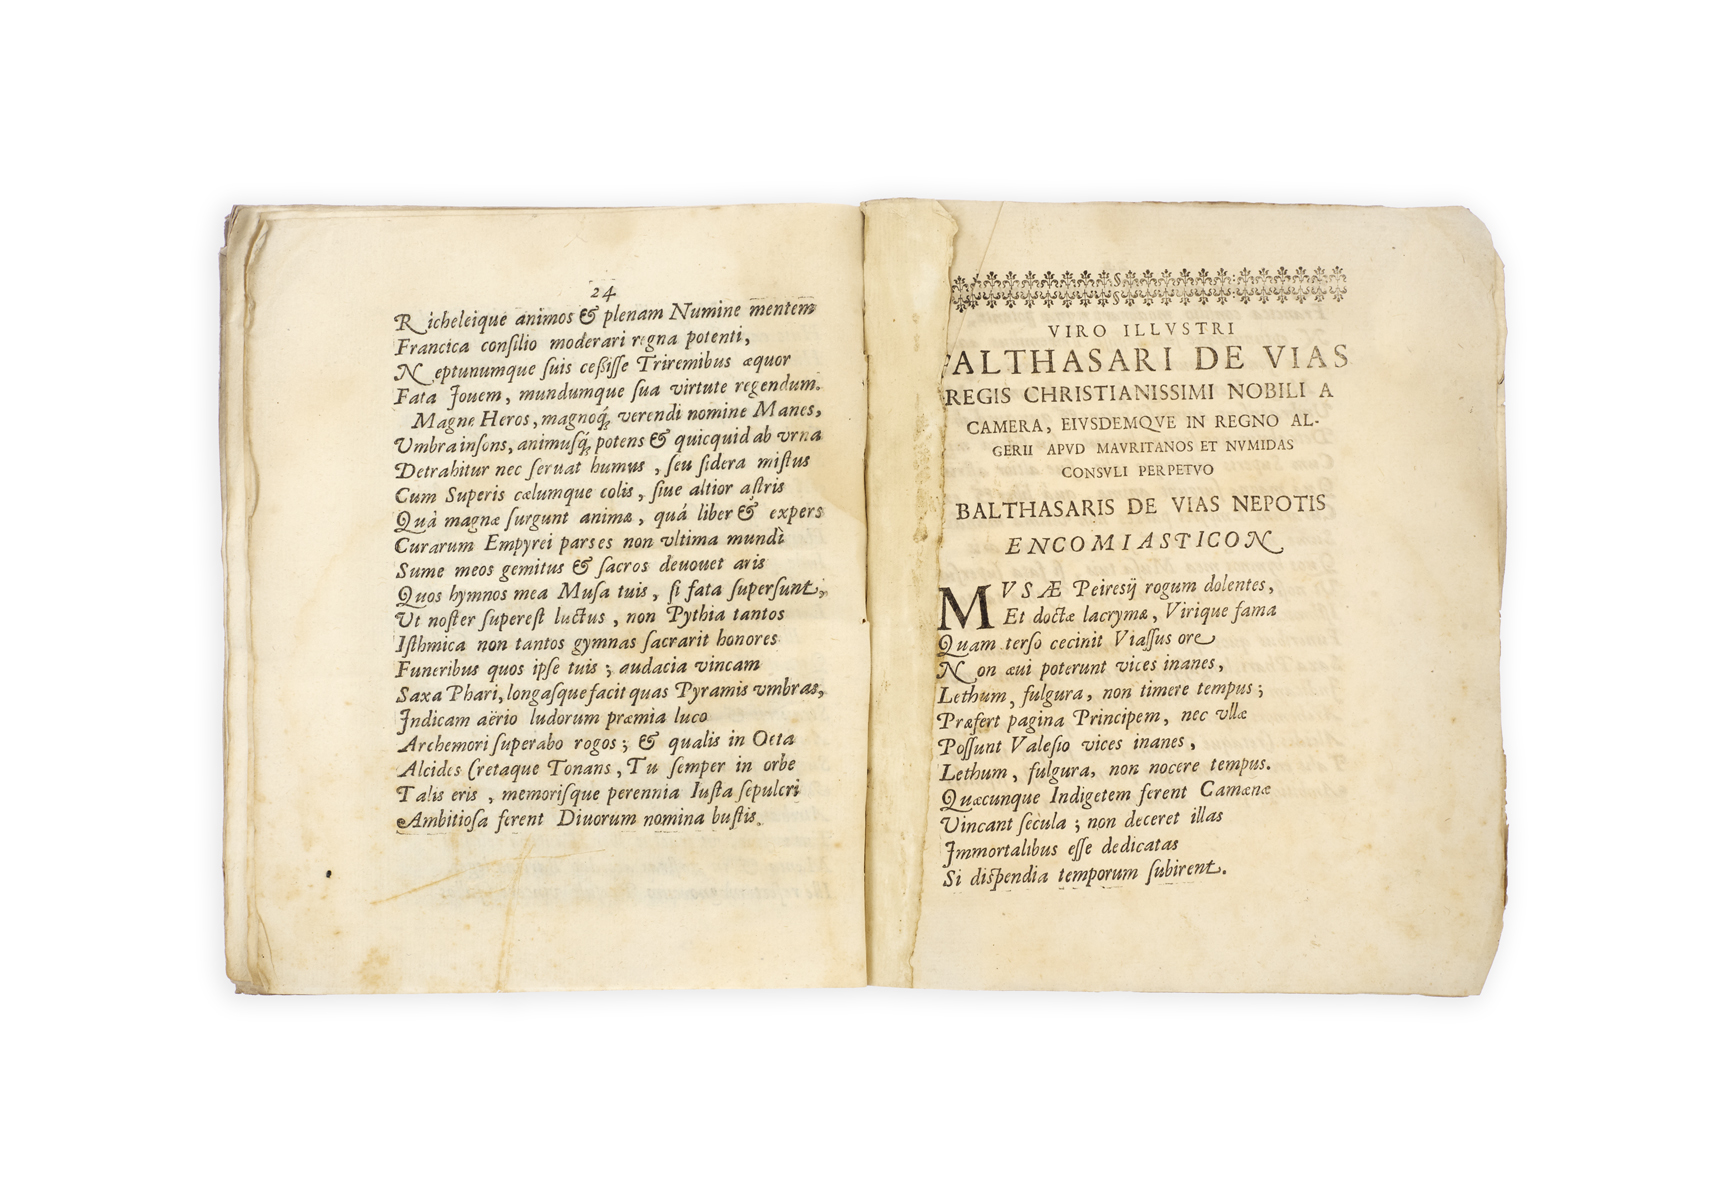 24
Richeleique animos & plenam Numine mentem
Francica conſilio moderari regna potenti,
Neptunumque ſuis ceßiſſe Triremibus æquor
Fata Jouem, mundumque ſua virtute regendum.
Magne Heros, magnoq́; verendi nomine Manes,
Umbra inſons, animuſq́; potens & quicquid ab vrna
Detrahitur nec ſeruat humus, ſeu ſidera miſtus
Cum Superis cælumque colis, ſiue altior aſtris
Quà magnæ ſurgunt animæ, quá liber & expers
Curarum Empyrei parses non vltima mundi
Sume meos gemitus & ſacros deuouet aris
Quos hymnos mea Muſa tuis, ſi fata superſunt,
Ut noſter ſupereſt luctus, non Pythia tantos
Iſthmica non tantos gymnas ſacrarit honores
Funeribus quos ipſe tuis; audacia vincam
Saxa Phari, longaſque facit quas Pyramis vmbras,
Indicam aërio ludorum præmia luco
Archemori ſuperabo rogos; & qualis in Oeta
Alcides Cretaque Tonans, Tu ſemper in orbe
Talis eris, memoriſque perennia Iuſta ſepulcri
Ambitioſa ferent Diuorum nomina buſtis.
VIRO ILLVSTRI
BALTHASARI DE VIAS
REGIS CHRISTIANISSIMI NOBILI A
CAMERA, EIVSDEMQVE IN REGNO AL-
GERII APVD MAVRITANOS ET NVMIDAS
CONSVLI PERPETVO
BALTHASARIS DE VIAS NEPOTIS
ENCOMIASTICON
MVSÆ Peireſij rogum dolentes,
Et doctæ lacrymæ, Virique fama
Quam terſo cecinit Viaſſus ore
Non æui poterunt vices inanes,
Lethum, fulgura, non timere tempus;
Præfert pagina Principem, nec vllæ
Poſſunt Valeſio vices inanes,
Lethum, fulgura, non nocere tempus.
Quæcunque Indigetem ferent Camænæ
Vincant ſecula; non deceret illas
Immortalibus eſſe dedicatas
Si diſpendia temporum ſubirent.